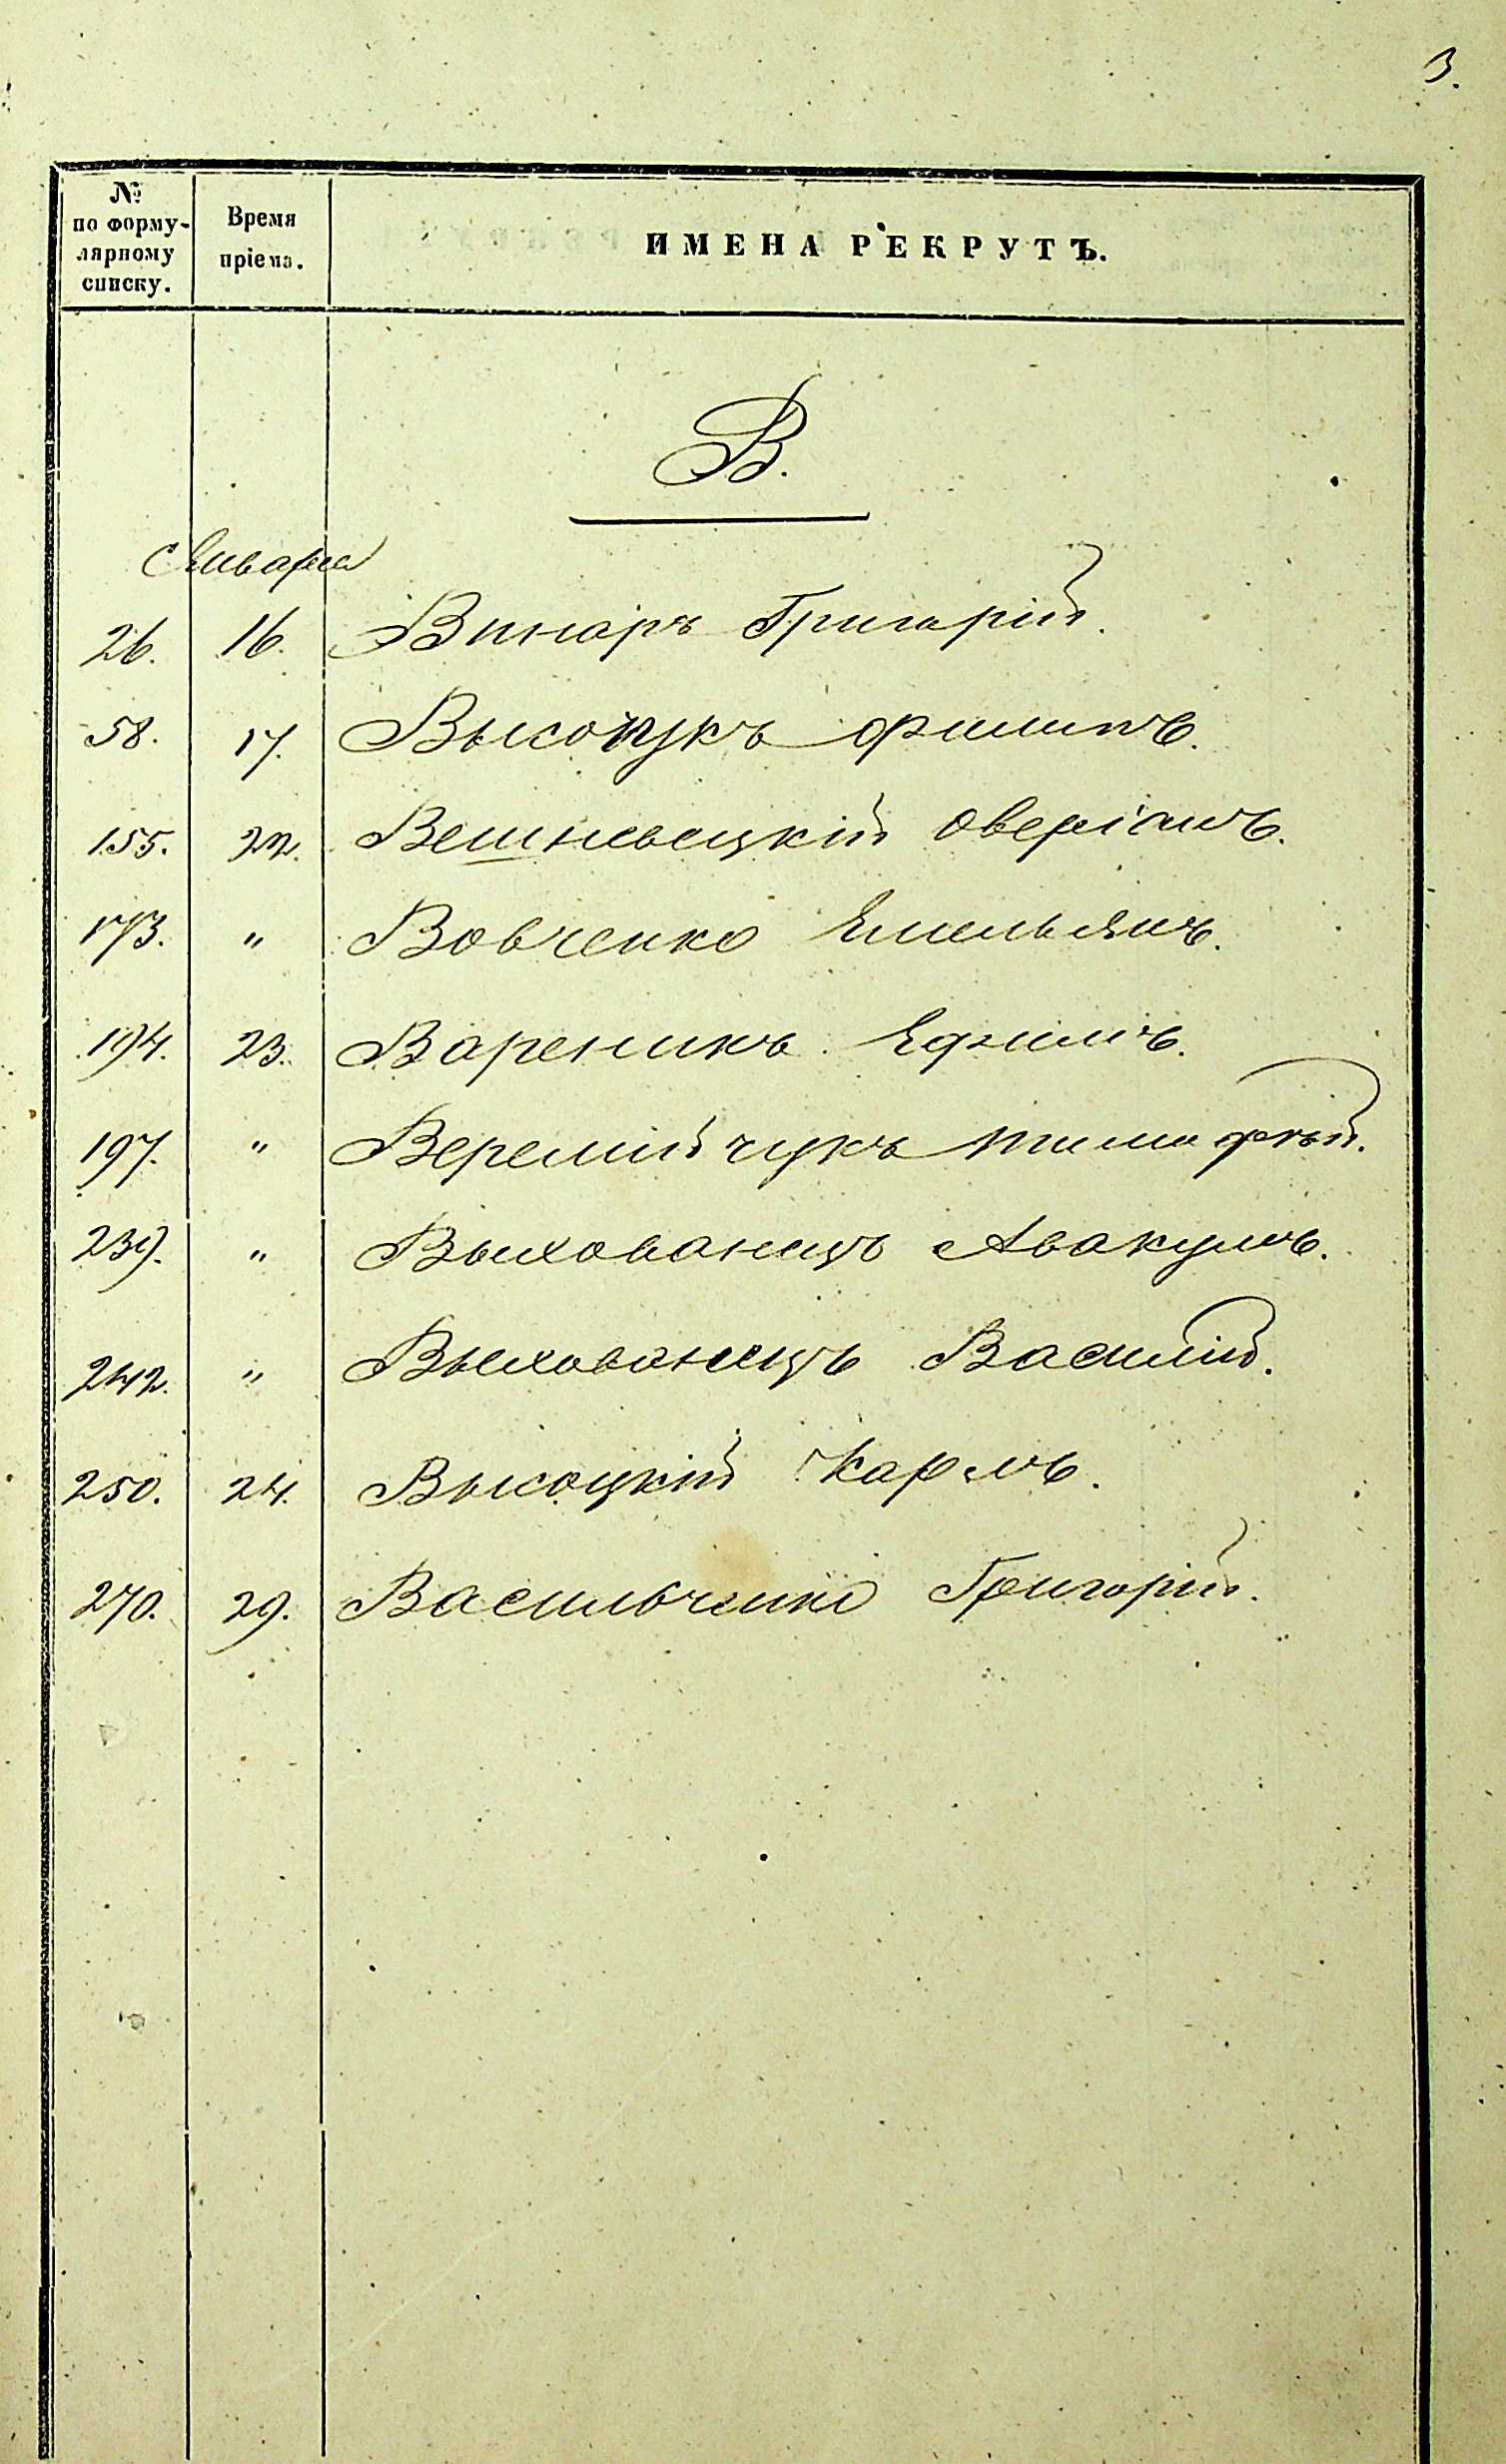 3.
№ по форму-лярному списку. Время пріема. ИМЕНА РЕКРУТЪ.
В.
Января
26. 16. Винаръ Григорій.
58. 17. Филипъ.
155. 22. Вешневецкій Оверіянъ.
173. " Вовченко Емельянъ.
194. 23. Вареникъ Ефимъ.
197. " Веремійчукъ Тимофѣй.
239. " Выхованецъ Авакумъ.
242. " Выхованецъ Василій.
250. 24. Высоцкій Карлъ.
270. 29. Васильченко Григорій.